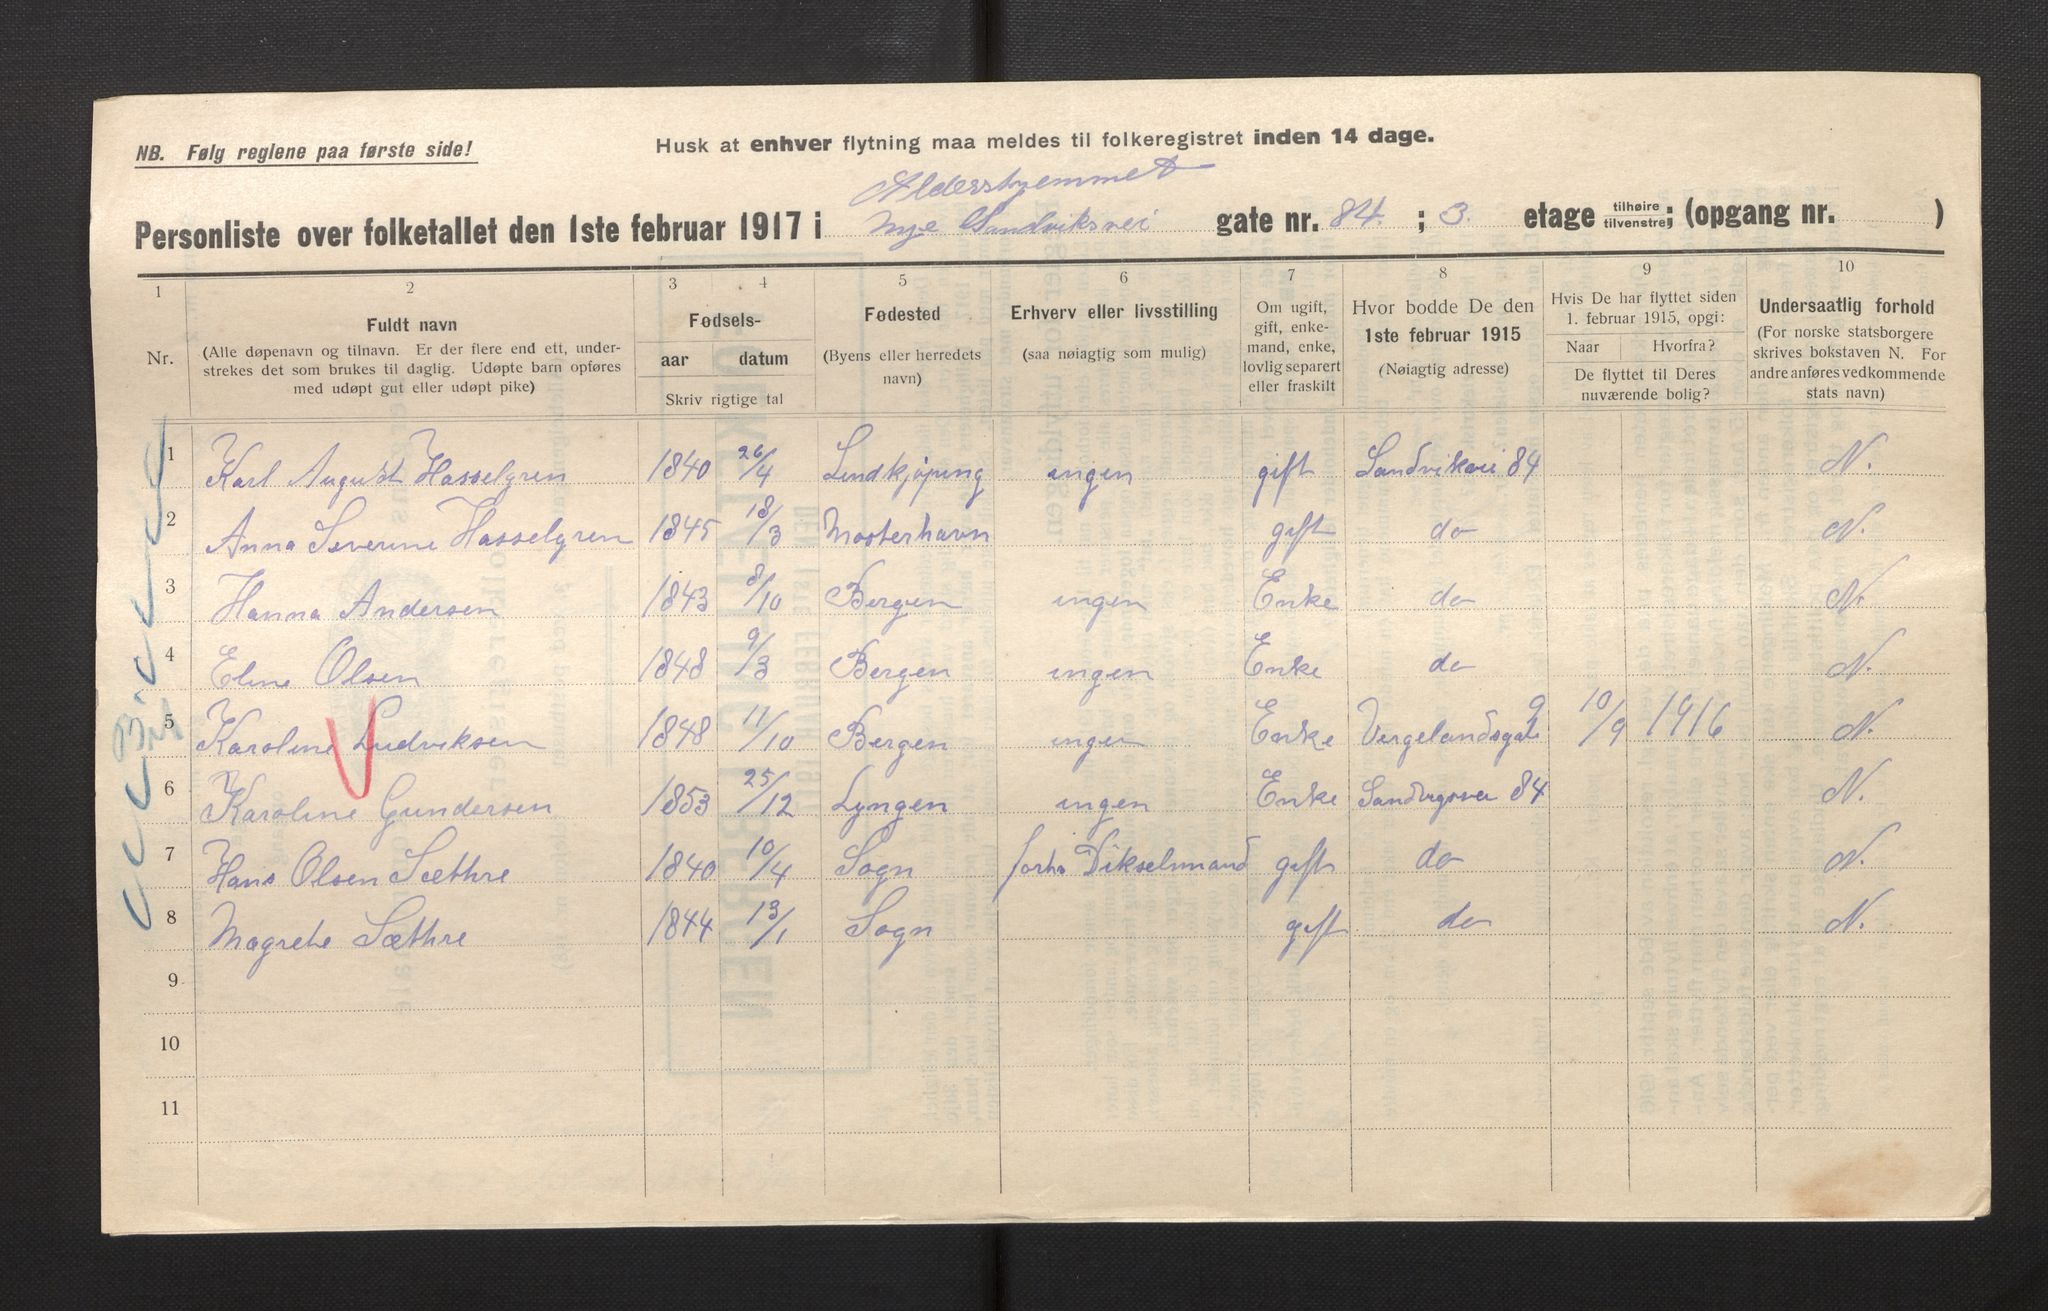 NB. Følg reglene paa første side!
Husk at enhver flytning maa meldes til folkeregistret inden 14 dage.
Aldershjemmet
Personliste over folketallet den 1ste februar 1917 i Nye Sandviksvei gate nr. 84. ; 3. etage tilhøire tilvenstre; (opgang nr. )
1 2 3 4 5 6 7 8 9 10
Nr.
Fuldt navn
(Alle døpenavn og tilnavn. Er der flere end ett, under-
strekes det som brukes til daglig. Udøpte barn opføres
med udøpt gut eller udøpt pike)
Fødsels-
aar datum
Skriv rigtige tal
Fødested
(Byens eller herredets
navn)
Erhverv eller livsstilling
(saa nøiagtig som mulig)
Om ugift,
gift, enke-
mand, enke,
lovlig separert
eller fraskilt
Hvor bodde De den
1ste februar 1915
(Nøiagtig adresse)
Hvis De har flyttet siden
1. februar 1915, opgi:
Naar Hvorfra?
De flyttet til Deres
nuværende bolig?
Undersaatlig forhold
(For norske statsborgere
skrives bokstaven N. For
andre anføres vedkommende
stats navn)
1 Karl August Hasselgren 1840 26/4 Lindkjøping ingen gift Sandviksvei 84 N.
2 Anna Severine Hasselgren 1845 18/3 Mosterhavn gift do N.
3 Hanna Andersen 1843 8/10 Bergen ingen Enke do N.
4 Eline Olsen 1848 9/3 Bergen ingen Enke do N.
5 Karoline Ludviksen 1848 11/10 Bergen ingen Enke Vergelandsgate 9 10/9 1916 N.
6 Karoline Gundersen 1853 25/12 Lyngen ingen Enke Sandvigsvei 84 N.
7 Hans Olsen Sæthre 1840 10/4 Sogn forh. Dikselmand gift do N.
8 Magrete Sæthre 1844 13/1 Sogn gift do N.
9
10
11